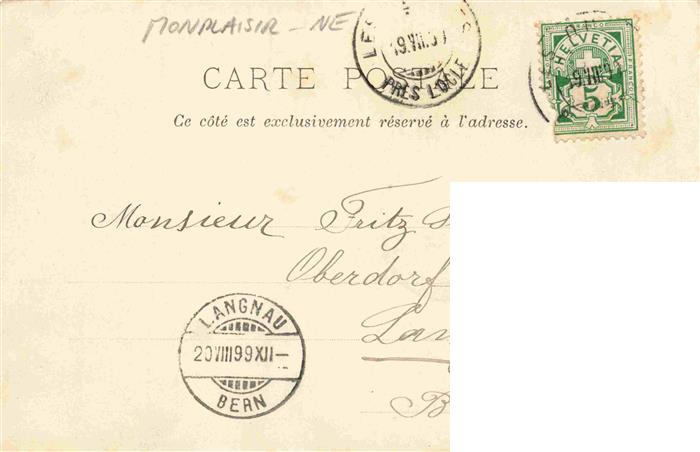 MONPLAISIR - NE
PRÈS LOCLE
HELVETIA
5
CARTE POSTALE
Ce côté est exclusivement réservé à l'adresse.
Monsieur Fritz
Oberdorf
LANGNAU
20VIII99XII-
BERN